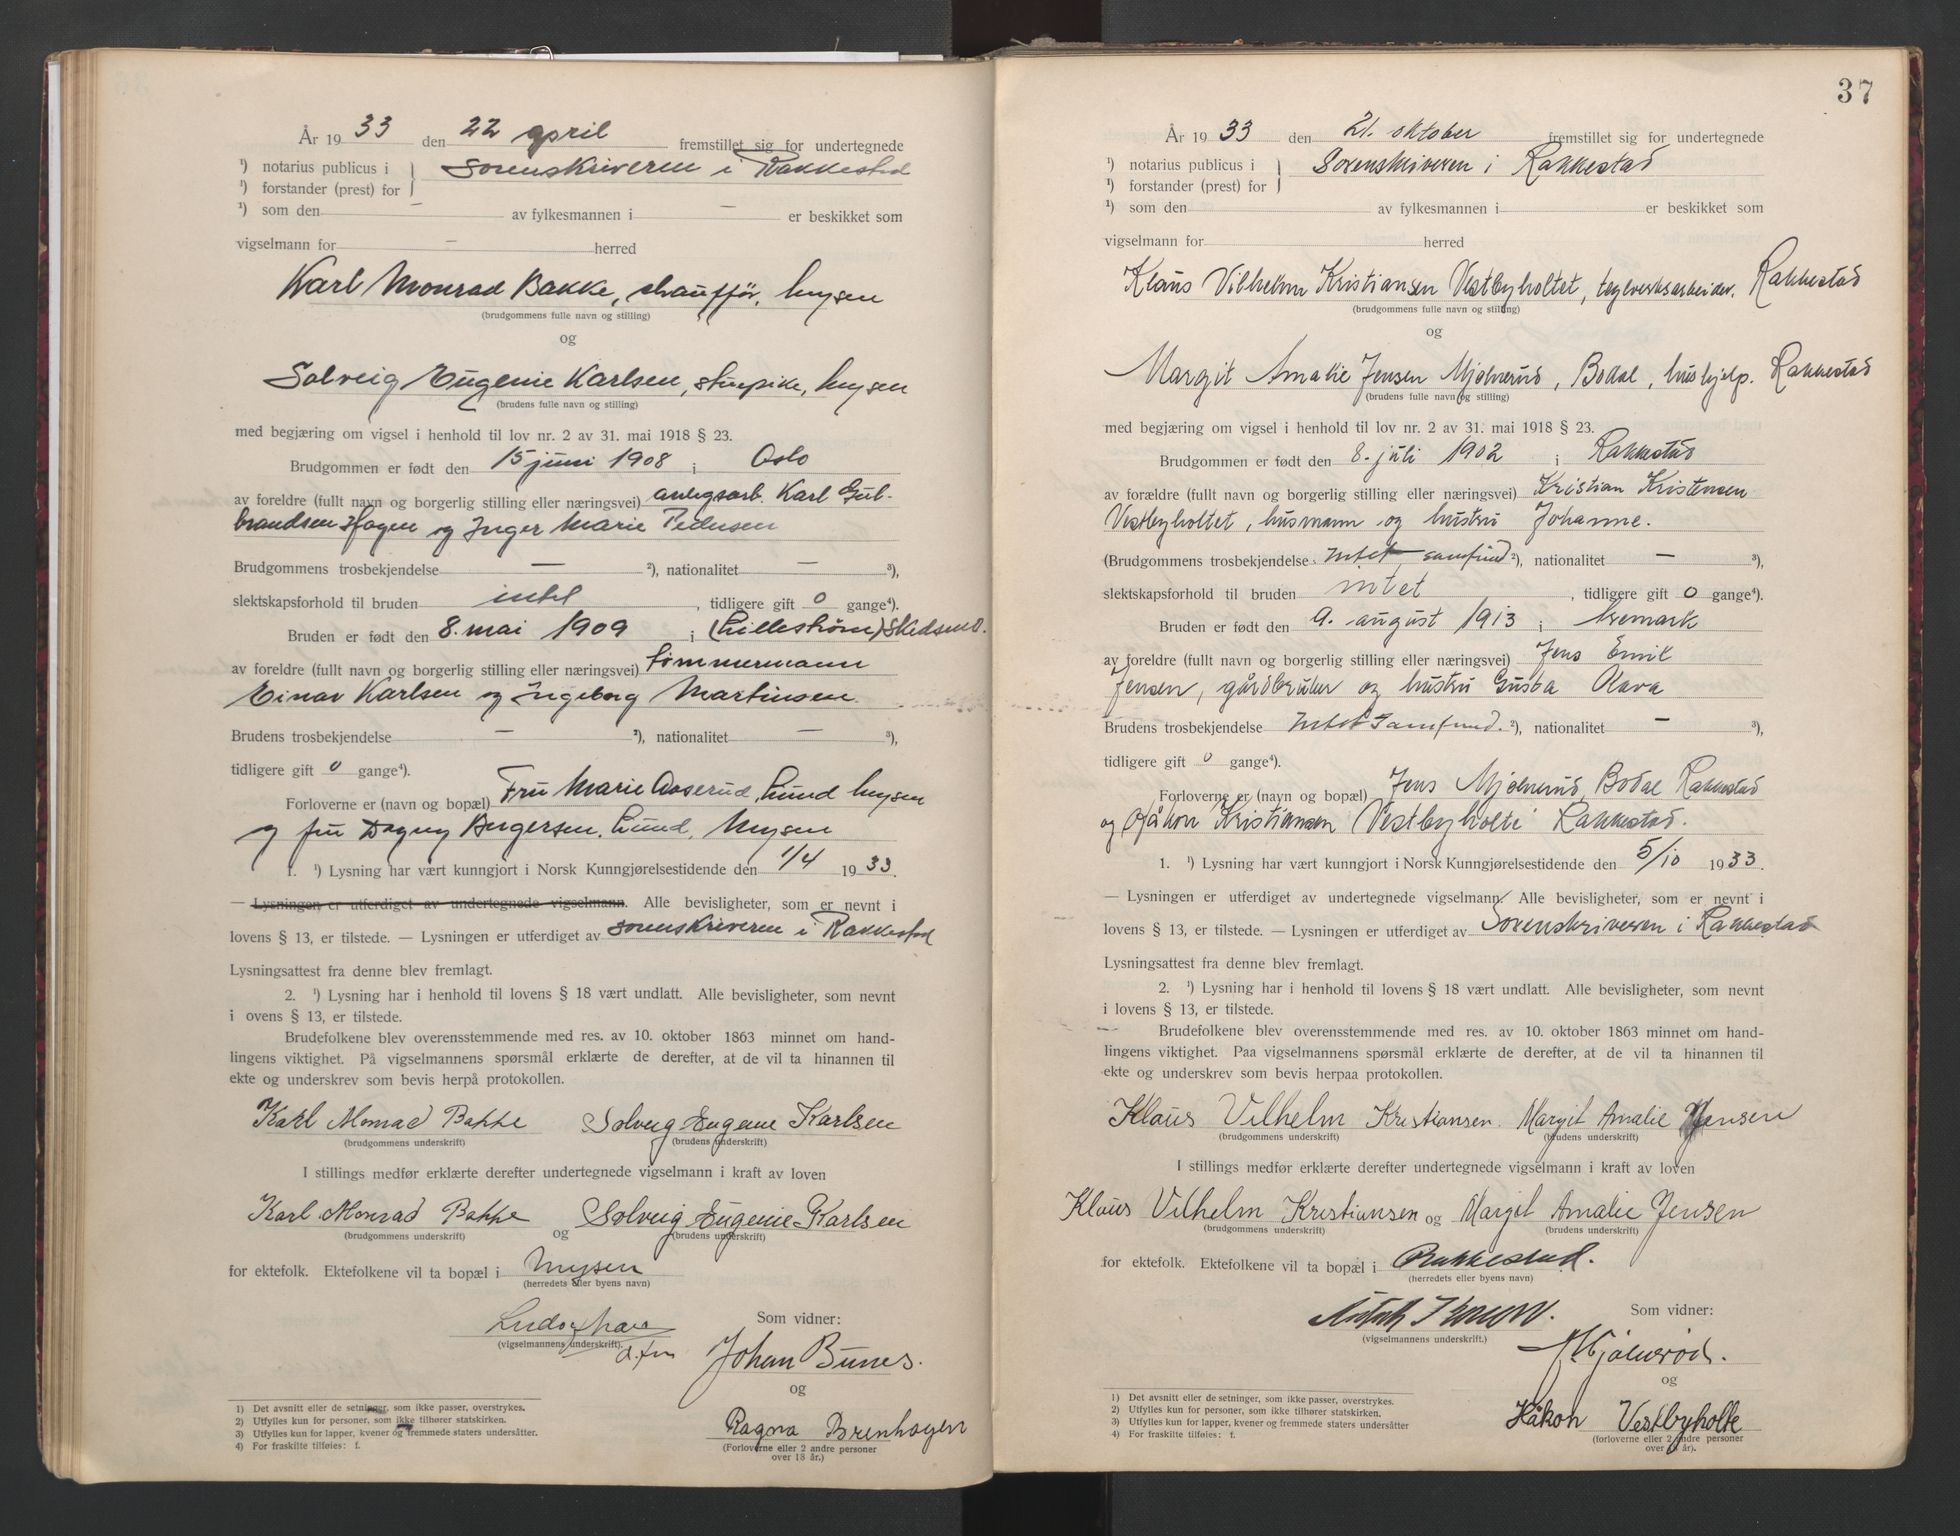 År 1933 den 22 april fremstillet sig for undertegnede
¹) notarius publicus i } Sorenskriveren i Rakkestad
¹) forstander (prest) for
¹) som den - av fylkesmannen i - er beskikket som
vigselmann for - herred
Karl Monrad Bakke, chauffør, Mysen
(brudgommens fulle navn og stilling)
og
Solveig Eugenie Karlsen, stuepike, Mysen
(brudens fulle navn og stilling)
med begjæring om vigsel i henhold til lov nr. 2 av 31. mai 1918 § 23.
Brudgommen er født den 15 juni 1908 i Oslo
av foreldre (fullt navn og borgerlig stilling eller næringsvei) anlegsarb. Karl Gul-
brandsen Hagen og Inger Marie Pedersen
Brudgommens trosbekjendelse — ²), nationalitet — ³),
slektskapsforhold til bruden intet, tidligere gift 0 gange⁴).
Bruden er født den 8. mai 1909 i (Lillestrøm) Skedsmo.
av foreldre (fullt navn og borgerlig stilling eller næringsvei) tømmermann
Einar Karlsen og Ingeborg Martinsen.
Brudens trosbekjendelse — ²), nationalitet — ³),
tidligere gift 0 gange⁴).
Forloverne er (navn og bopæl) Fru Marie Aaserud, Lund Mysen
og fru Dagny Birgersen, Lund, Mysen
1. ¹) Lysning har vært kunngjort i Norsk Kunngjørelsestidende den 1/4 1933.
— Lysningen er utferdiget av undertegnede vigselmann. Alle bevisligheter, som er nevnt i
lovens § 13, er tilstede. — Lysningen er utferdiget av sorenskriveren i Rakkestad
Lysningsattest fra denne blev fremlagt.
2. ¹) Lysning har i henhold til lovens § 18 vært undlatt. Alle bevisligheter, som nevnt
i ovens § 13, er tilstede.
Brudefolkene blev overensstemmende med res. av 10. oktober 1863 minnet om hand-
lingens viktighet. På vigselmannens spørsmål erklærte de derefter, at de vil ta hinannen til
ekte og underskrev som bevis herpå protokollen.
Karl Monrad Bakke Solveig Eugenie Karlsen
(brudgommens underskrift) (brudens underskrift)
I stillings medfør erklærte derefter undertegnede vigselmann i kraft av loven
Karl Monrad Bakke og Solveig Eugenie Karlsen
(brudgommens underskrift) (brudens underskrift)
for ektefolk. Ektefolkene vil ta bopæl i Mysen
(herredets eller byens navn)
Som vidner:
(vigselmannens underskrift).
Johan Bunes.
og
Ragna Brenhagen
(Forloverne eller 2 andre personer
over 18 år.)
1) Det avsnitt eller de setninger, som ikke passer, overstrykes.
2) Utfylles kun for personer, som ikke tilhører statskirken.
3) Utfylles kun for lapper, kvener og fremmede staters undersåtter.
4) For fraskilte tilføies: f.
37
År 1933 den 21. oktober fremstillet sig for undertegnede
¹) notarius publicus i } Sorenskriveren i Rakkestad
¹) forstander (prest) for
¹) som den av fylkesmannen i er beskikket som
vigselmann for herred
Klaus Vilhelm Kristiansen Vestbyholtet, teglverksarbeider, Rakkestad
(brudgommens fulle navn og stilling)
og
Margit Amalie Jensen Mjølnerud, Bodal, hushjelp. Rakkestad
(brudens fulle navn og stilling)
med begjæring om vigsel i henhold til lov nr. 2 av 31. mai 1918 § 23.
Brudgommen er født den 8. juli 1902 i Rakkestad
av forældre (fullt navn og borgerlig stilling eller næringsvei) Kristian Kristensen
Vestbyholtet, husmann og hustru Johanne.
(Brudgommens trosbekjendelse intet samfund ²), nationalitet — ³),
slektskapsforhold til bruden intet, tidligere gift 0 gange⁴).
Bruden er født den 9. august 1913 i Aremark
av foreldre (fullt navn og borgerlig stilling eller næringsvei) Jens Emil
Jensen, gårdbruker og hustru Gusta Olava
Brudens trosbekjendelse Intet Samfund. ²), nationalitet — ³),
tidligere gift 0 gange⁴).
Forloverne er (navn og bopæl) Jens Mjølnerud, Bodal Rakkestad
og Håkon Kristiansen Vestbyholte Rakkestad.
1. ¹) Lysning har vært kunngjort i Norsk Kunngjørelsestidende den 5/10 1933.
— Lysningen er utferdiget av undertegnede vigselmann. Alle bevisligheter, som er nevnt i
lovens § 13, er tilstede. — Lysningen er utferdiget av Sorenskriveren i Rakkestad
Lysningsattest fra denne blev fremlagt.
2. ¹) Lysning har i henhold til lovens § 18 vært undlatt. Alle bevisligheter, som nevnt
i lovens § 13, er tilstede.
Brudefolkene blev overensstemmende med res. av 10. oktober 1863 minnet om hand-
lingens viktighet. Paa vigselmannens spørsmål erklærte de derefter, at de vil ta hinannen til
ekte og underskrev som bevis herpaa protokollen.
Klaus Vilhelm Kristiansen. Margit Amalie Jensen
(brudgommens underskrift) (brudens underskrift)
I stillings medfør erklærte derefter undertegnede vigselmann i kraft av loven
Klaus Vilhelm Kristiansen og Margit Amalie Jensen
(brudgommens underskrift) (brudens underskrift)
for ektefolk. Ektefolkene vil ta bopæl i Rakkestad.
(herredets eller byens navn)
Som vidner:
(vigselmannens underskrift.)
J Mjølnerød.
og
Håkon Vestbyholte
(forloverne eller 2 andre personer
over 18 år.)
1) Det avsnitt eller de setninger, som ikke passer, overstrykes.
2) Utfylles kun for personer, som ikke tilhører statskirken.
3) Utfylles kun for lapper, kvener og fremmede staters undersåtter
4) For fraskilte tilføies: f.